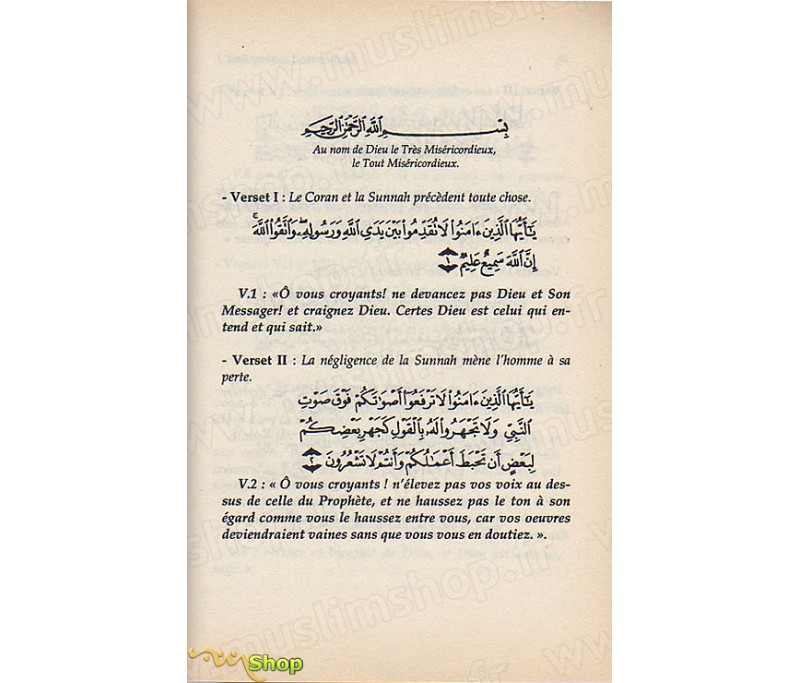 بِسْــــــمِ ٱللَّهِ ٱلرَّحْمَٰنِ ٱلرَّحِيمِ
Au nom de Dieu le Très Miséricordieux,
le Tout Miséricordieux.
- Verset I : Le Coran et la Sunnah précèdent toute chose.
يَٰٓأَيُّهَا ٱلَّذِينَ ءَامَنُوا۟ لَا تُقَدِّمُوا۟ بَيْنَ يَدَىِ ٱللَّهِ وَرَسُولِهِۦ ۖ وَٱتَّقُوا۟ ٱللَّهَ ۚ
إِنَّ ٱللَّهَ سَمِيعٌ عَلِيمٌ ١
V.1 : «Ô vous croyants! ne devancez pas Dieu et Son
Messager! et craignez Dieu. Certes Dieu est celui qui en-
tend et qui sait.»
- Verset II : La négligence de la Sunnah mène l'homme à sa
perte.
يَٰٓأَيُّهَا ٱلَّذِينَ ءَامَنُوا۟ لَا تَرْفَعُوٓا۟ أَصْوَٰتَكُمْ فَوْقَ صَوْتِ
ٱلنَّبِىِّ وَلَا تَجْهَرُوا۟ لَهُۥ بِٱلْقَوْلِ كَجَهْرِ بَعْضِكُمْ
لِبَعْضٍ أَن تَحْبَطَ أَعْمَٰلُكُمْ وَأَنتُمْ لَا تَشْعُرُونَ ٢
V.2 : « Ô vous croyants ! n'élevez pas vos voix au des-
sus de celle du Prophète, et ne haussez pas le ton à son
égard comme vous le haussez entre vous, car vos oeuvres
deviendraient vaines sans que vous vous en doutiez. ».
www.muslimshop.fr
Shop